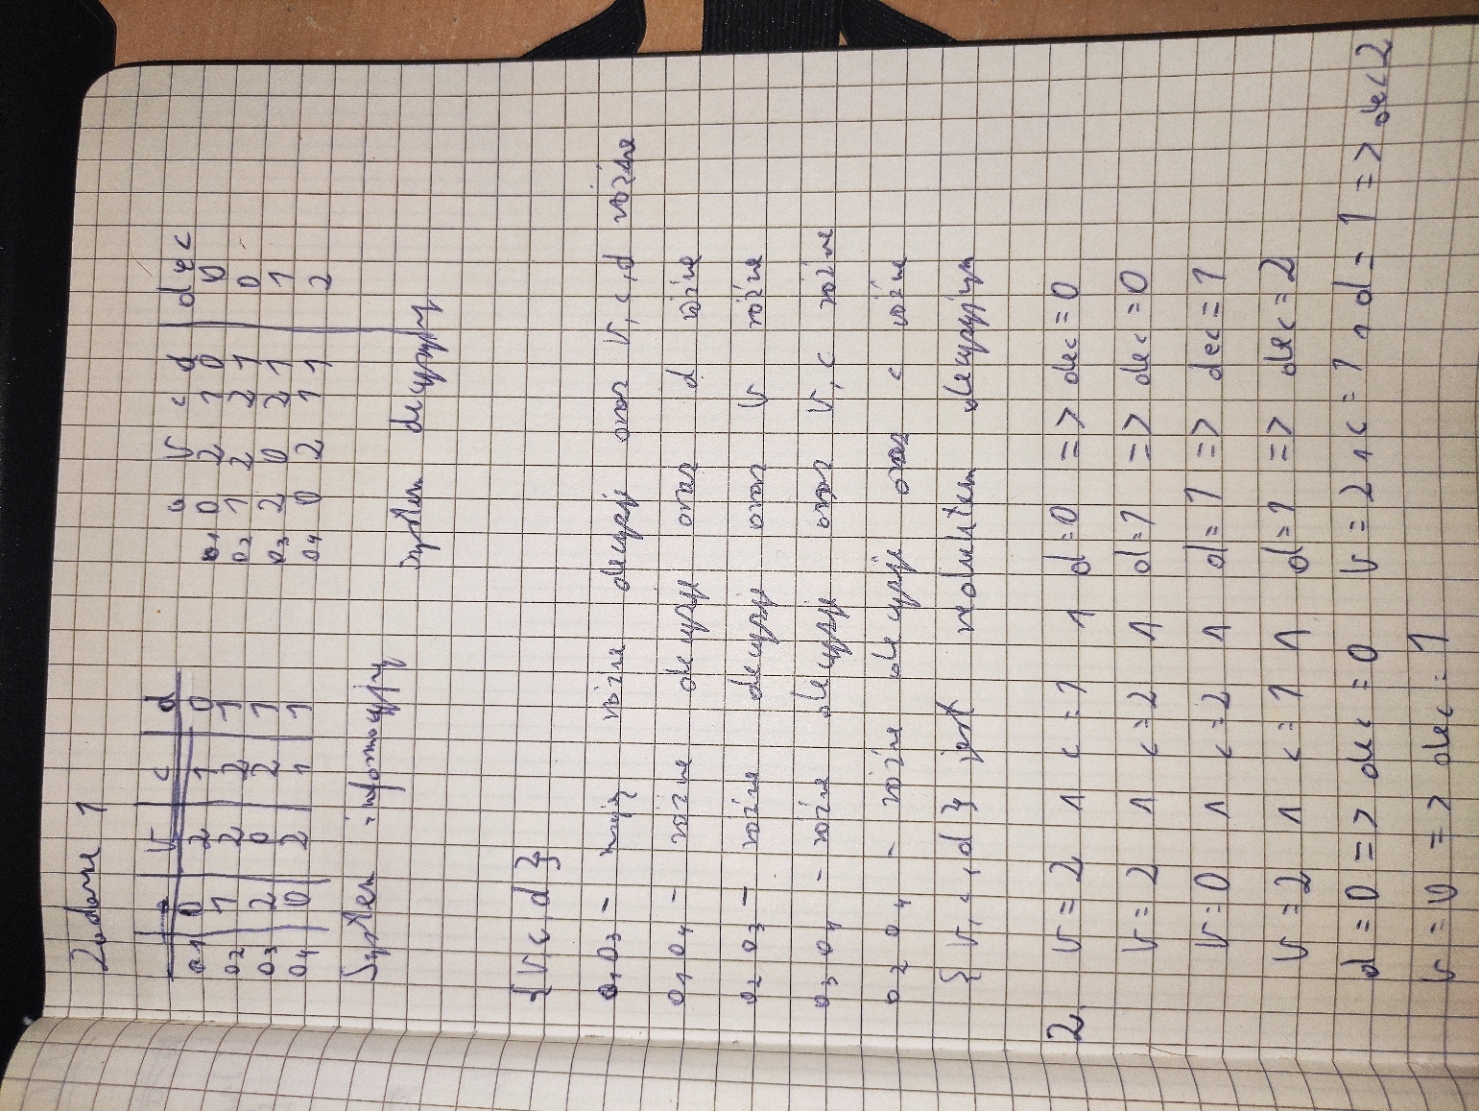 Zadanie 1
a v c d
o1 0 2 1 0
o2 1 2 2 1
o3 2 0 2 1
o4 0 2 1 1
System informacyjny
a v c d dec
o1 0 2 1 0 0
o2 1 2 2 1 0
o3 2 0 2 1 1
o4 0 2 1 1 2
System decyzyjny
{v, c, d}
o1 o3 - mają różne decyzje oraz v, c, d różne
o1 o4 - różne decyzje oraz d różne
o2 o3 - różne decyzje oraz v różne
o3 o4 - różne decyzje oraz v, c różne
o2 o4 - różne decyzje oraz c różne
{v, c, d} jest reduktem decyzyjnym
2. v = 2 ∧ c = 1 ∧ d = 0 => dec = 0
v = 2 ∧ c = 2 ∧ d = 1 => dec = 0
v = 0 ∧ c = 2 ∧ d = 1 => dec = 1
v = 2 ∧ c = 1 ∧ d = 1 => dec = 2
d = 0 => dec = 0 v = 2 ∧ c = 1 ∧ d = 1 => dec 2
v = 0 => dec = 1